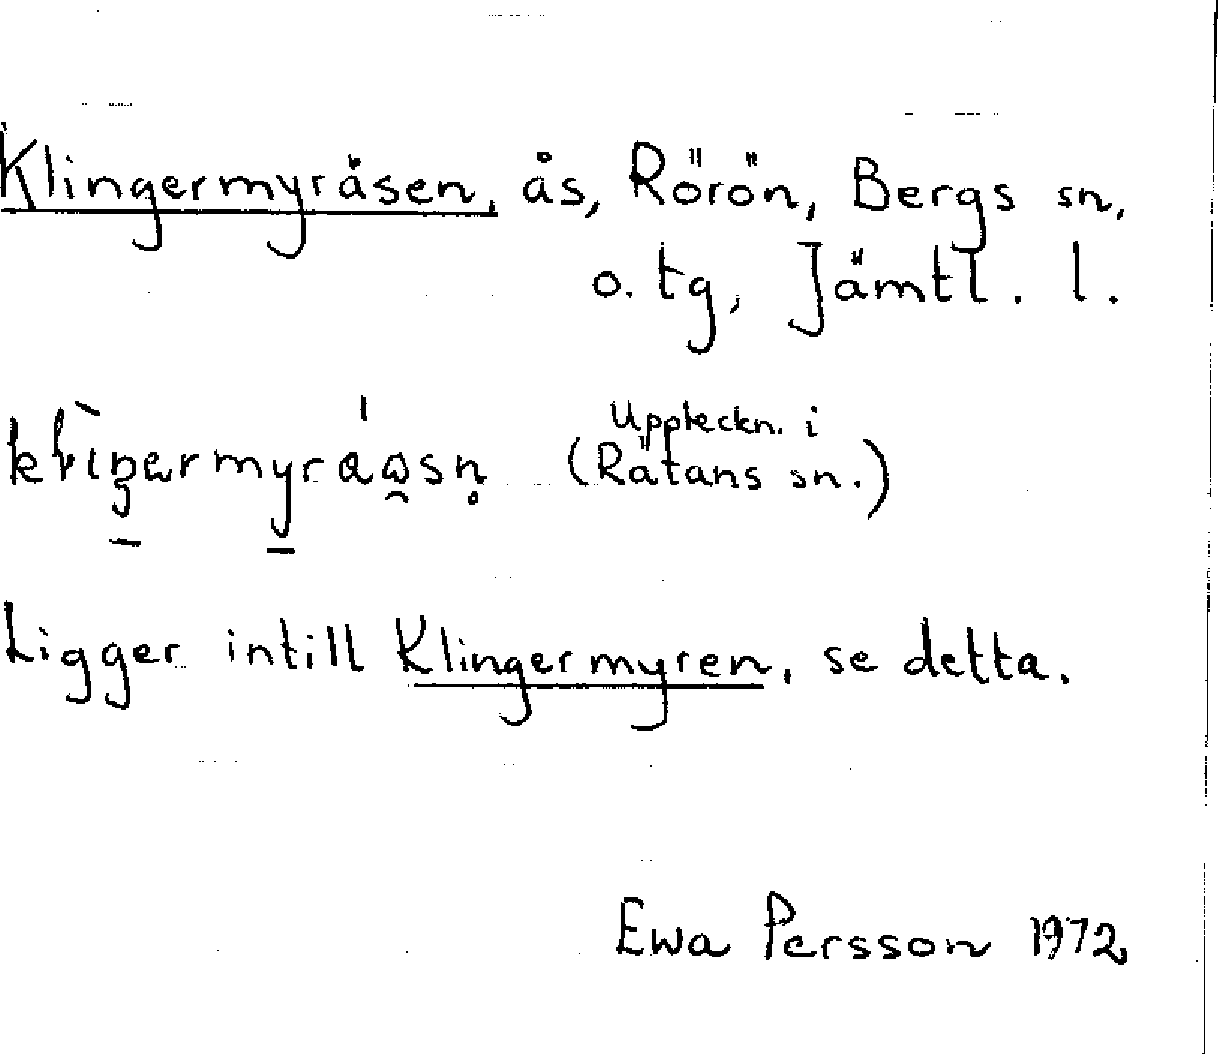 Klingermyråsen, ås, Rörön, Bergs sn,
o. tg, Jämtl. l.
(Uppteckn. i
Rätans sn.)
Ligger intill Klingermyren, se detta.
Ewa Persson 1972